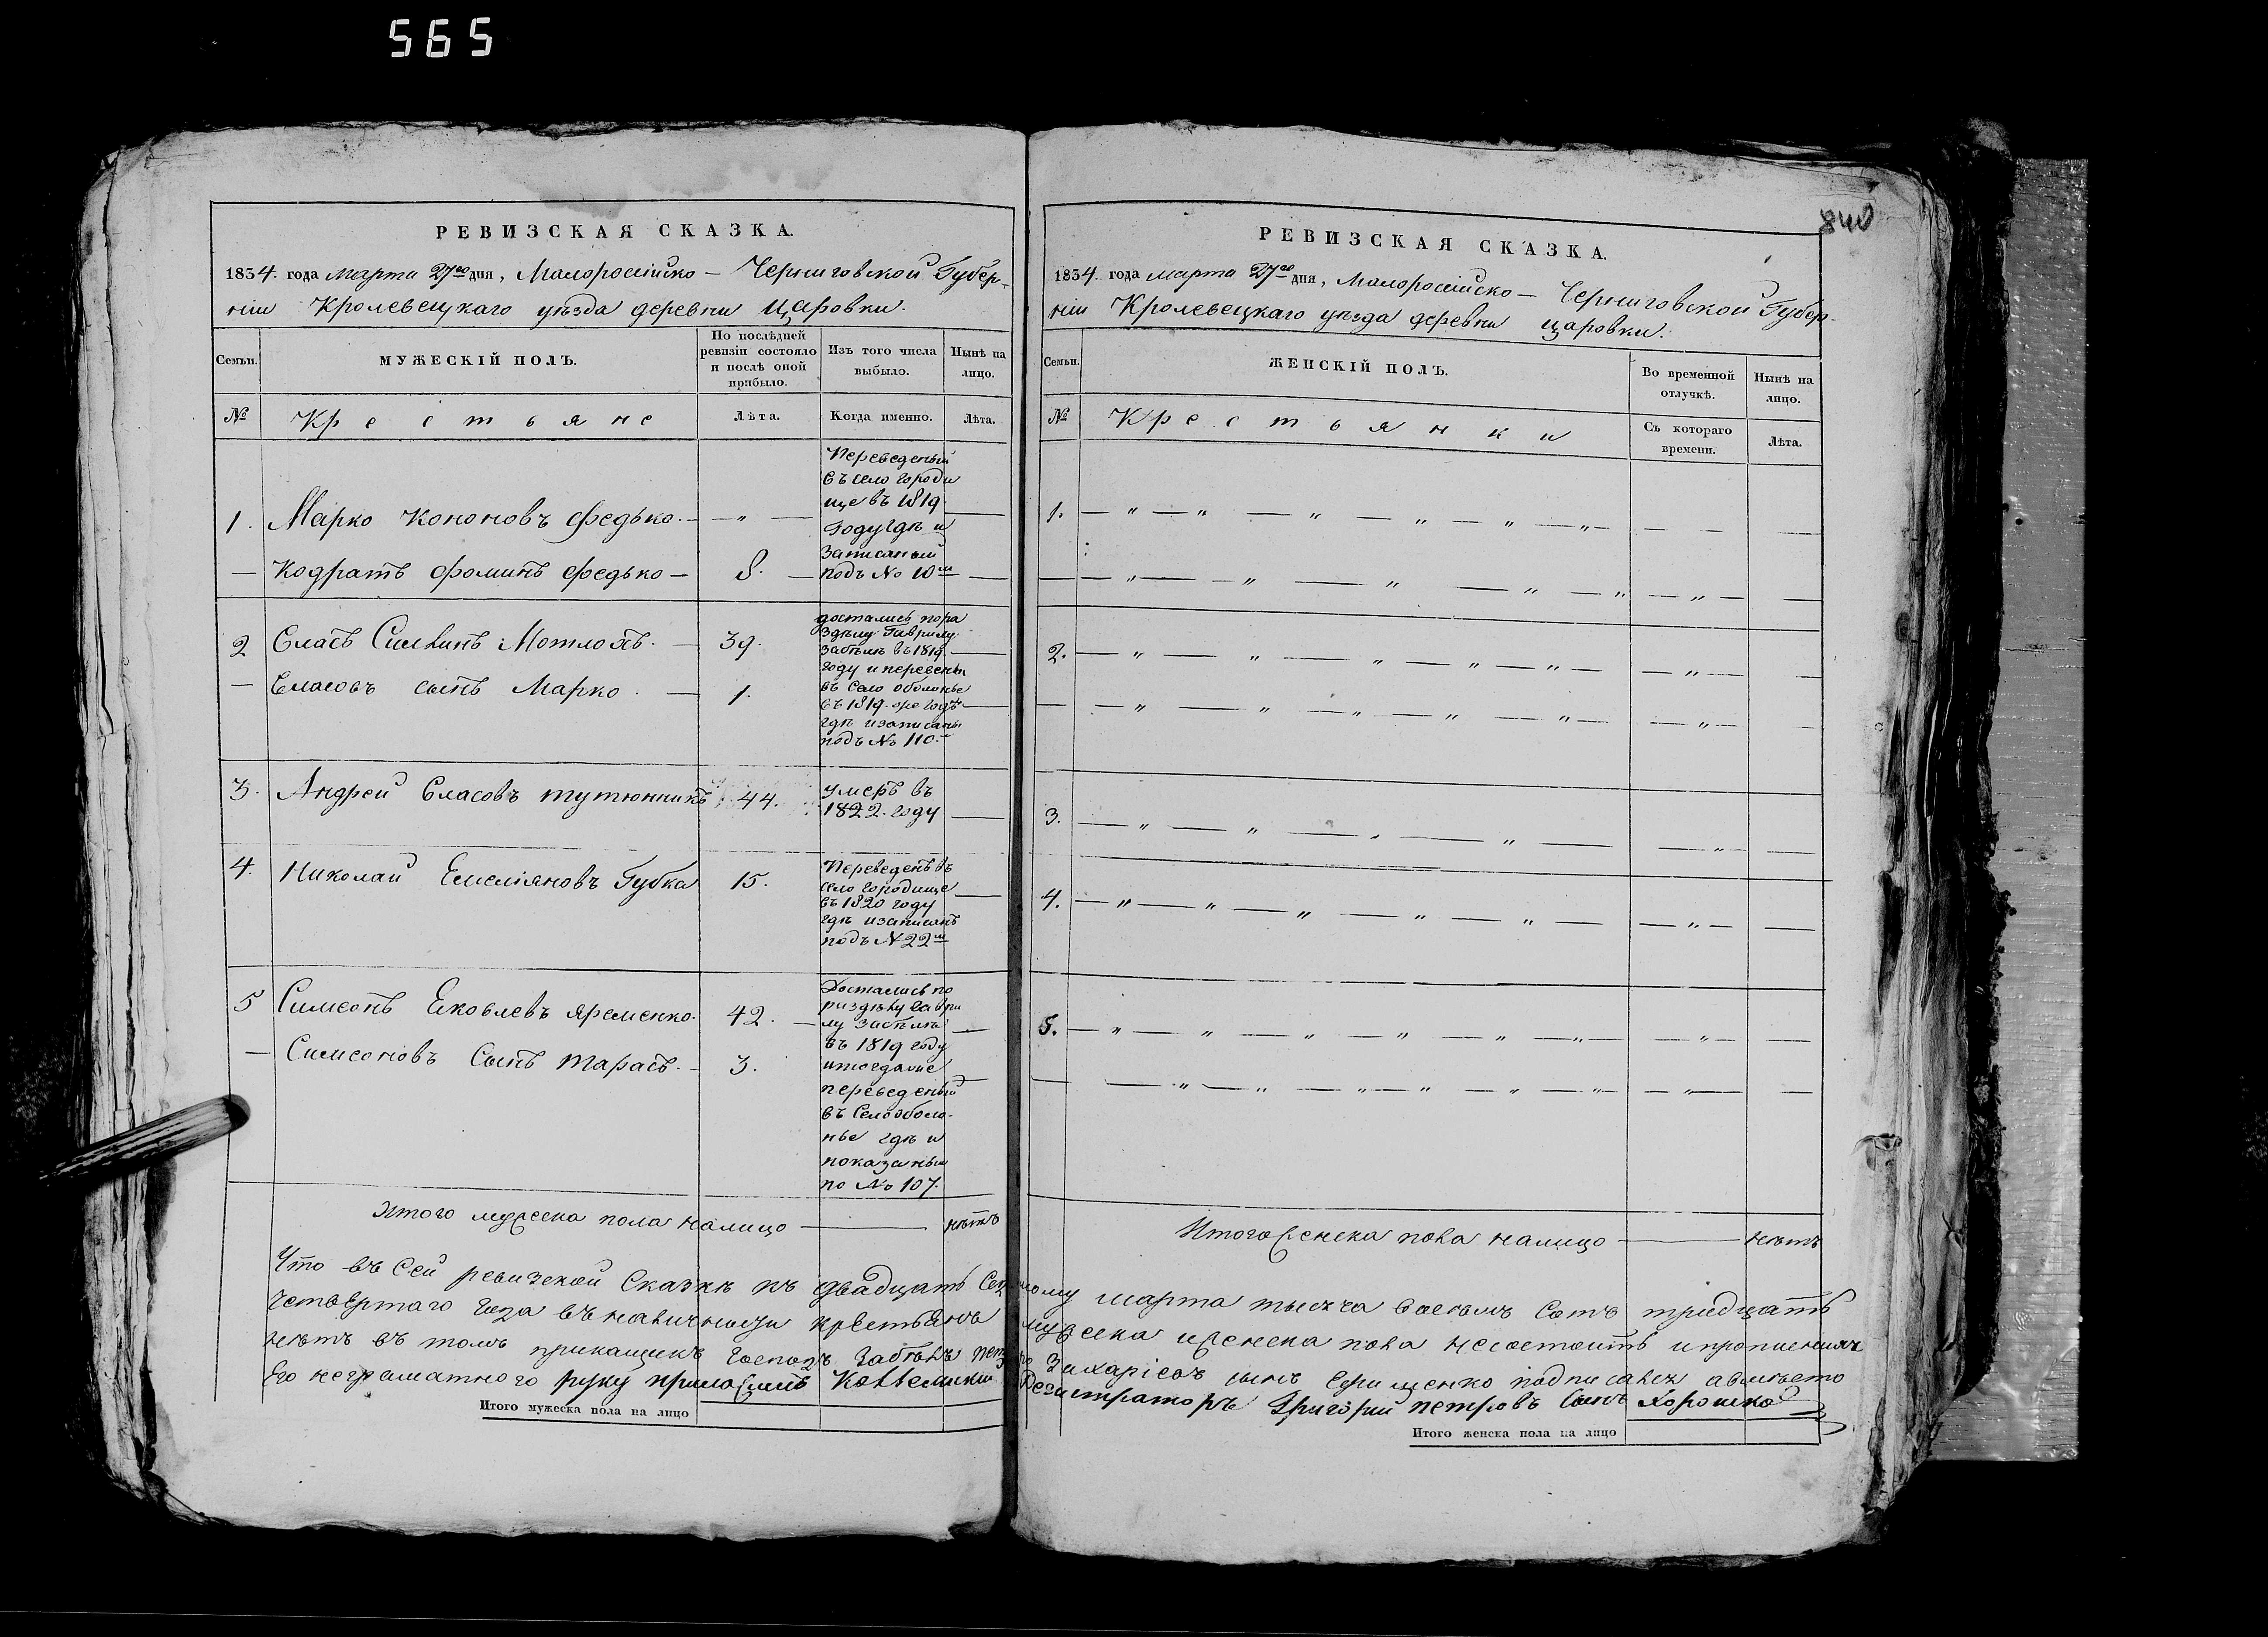 565
840
РЕВИЗСКАЯ СКАЗКА.
1834. года марта 27го дня, Малоросийско — Черниговской Губер-
нiи Кролевецкаго уѣзда деревни Царовки.
Семьи.
МУЖЕСКIЙ ПОЛЪ.
По послѣдней
ревизiи состояло
и послѣ оной
прибыло.
Изъ того числа
выбыло.
Нынѣ на
лицо.
№
Крестьяне
Лѣта.
Когда именно.
Лѣта.
1. Марко Кононовъ Федько. — " —
— Кодратъ Фоминъ Федько — 8. —
Переведеный
въ село городи
ще въ 1819
году гдѣ и
записаный
подъ № 10м
2 Власъ Силкинъ Мотлохъ. — 39.
— Власовъ сынъ Марко. — 1.
достались по ра
здѣлу Гаврилу
Забѣлѣ въ 1819
году и переведены
въ Село оболонье
въ 1819. же годѣ
гдѣ и записаны
подъ № 110.
3. Андрей Власовъ тутюнникъ 44.
умеръ въ
1822. году
4. Николай Емелiяновъ Губка 15.
Переведенъ въ
село городище
въ 1820 году
гдѣ и записанъ
подъ № 22м
5 Симеонъ Яковлевъ яременко. 42. —
— Симеоновъ Сынъ тарасъ. — 3.
Достались по
раздѣлу Гаври
лу Забѣлѣ
въ 1819 году
и тогда же
переведеный
въ Село оболо-
нье гдѣ и
показаный
по № 107.
Итого мужеска пола на лицо — нѣтъ
РЕВИЗСКАЯ СКАЗКА.
1834. года марта 27го дня, Малоросийско — Черниговской Губер-
нiи Кролевецкаго уѣзда деревни царовки.
Семьи.
ЖЕНСКIЙ ПОЛЪ.
Во временной
отлучкѣ.
Нынѣ на
лицо.
№
Крестьянки
Съ котораго
времени.
Лѣта.
1. — " — " — " — " — " — " — — —
— — " — " — " — " — " — " — —
2. — " — " — " — " — " — — " — —
— — " — " — " — " — " — — " — —
3. — " — " — " — " — — " — —
4. — " — " — " — " — " — — " — —
5. — " — " — " — " — " — " — — " — —
— — " — " — " — " — " — " — — " — —
Итого женска пола на лицо — нѣтъ
Что въ сей ревизской Сказкѣ къ двадцать Седмому марта тысяча восемъ Сотъ тридцать
четвертаго года въ наличности крестьянъ мужеска и женска пола несостоитъ и прописныхъ
нѣтъ въ томъ прикащикъ Господъ Забѣлъ Петро Захарiевъ сынъ Ефименко подписался а вмѣсто
Его неграматного руку приложилъ Коллежскiй Регистраторъ Григорiй Петровъ Сынъ Хорошко
Итого мужеска пола на лицо
Итого женска пола на лицо